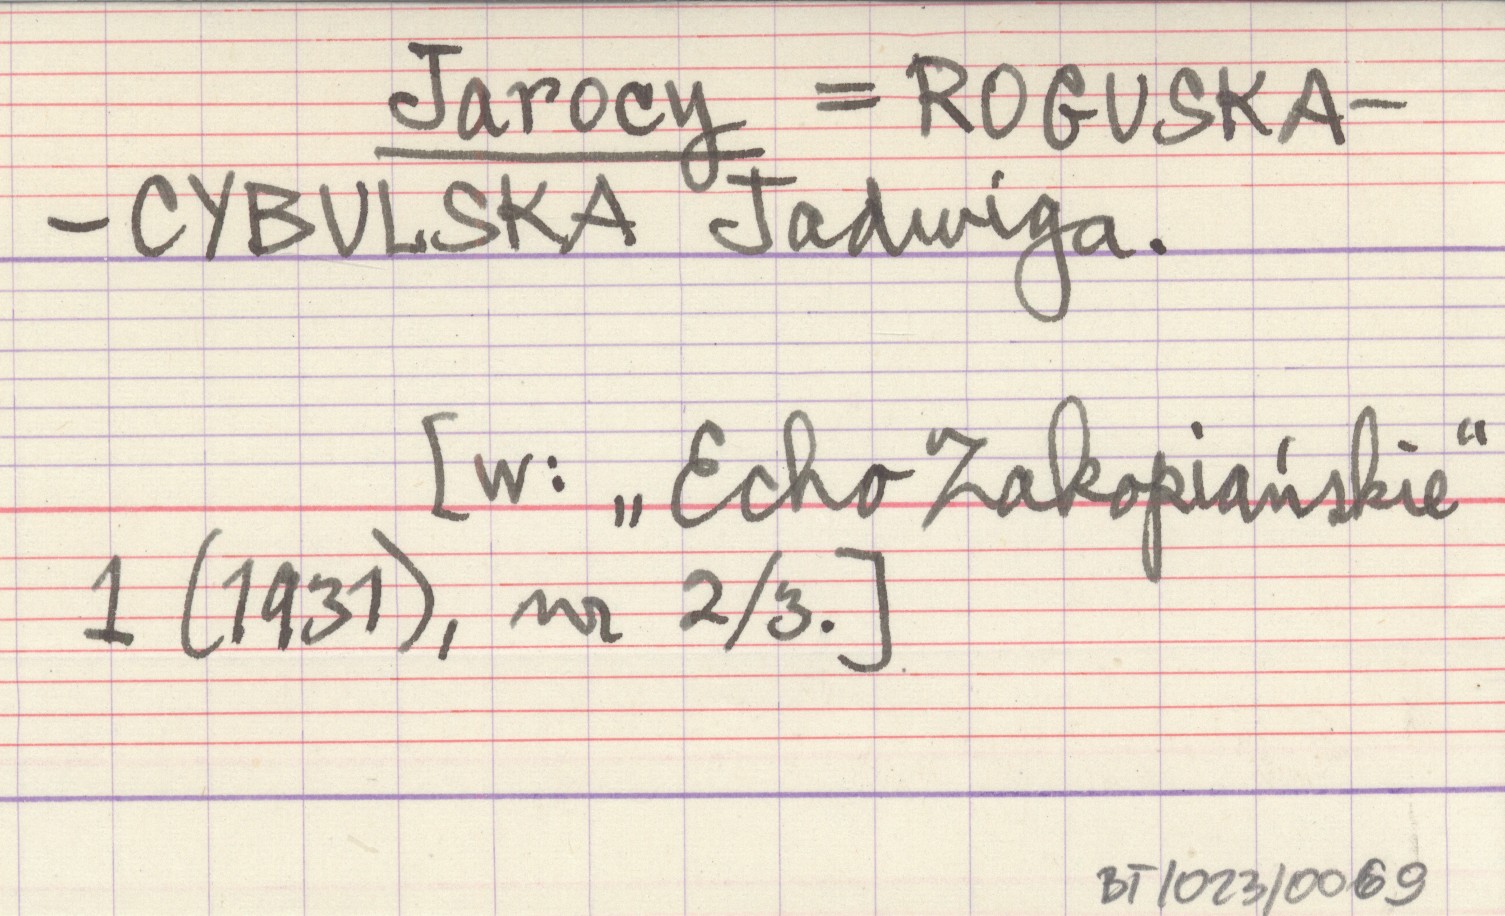 Jarocy = ROGUSKA-
-CYBULSKA Jadwiga.
[w: „Echo Zakopiańskie“
1 (1931), nr 2/3.]
BT/023/0069